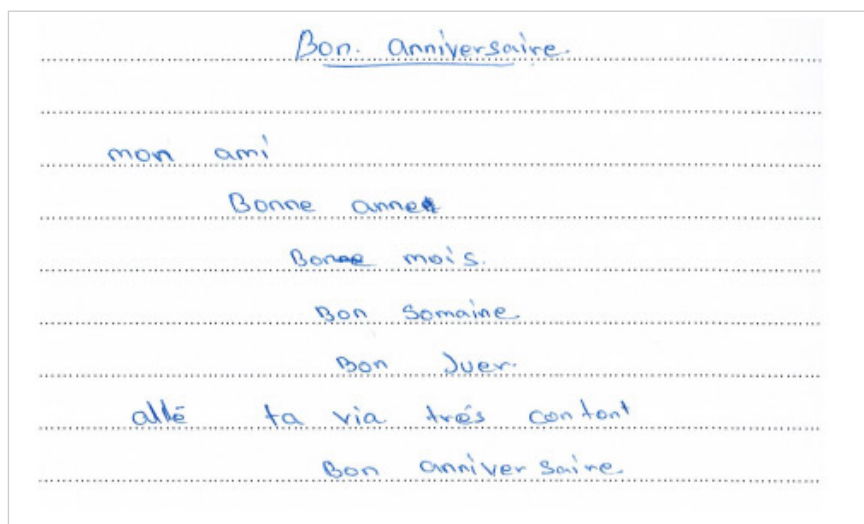 Bon. anniversaire.
mon ami
Bonne anne
Bon mois.
Bon somaine
Bon Juer.
allé ta via trés contont
Bon anniversaire